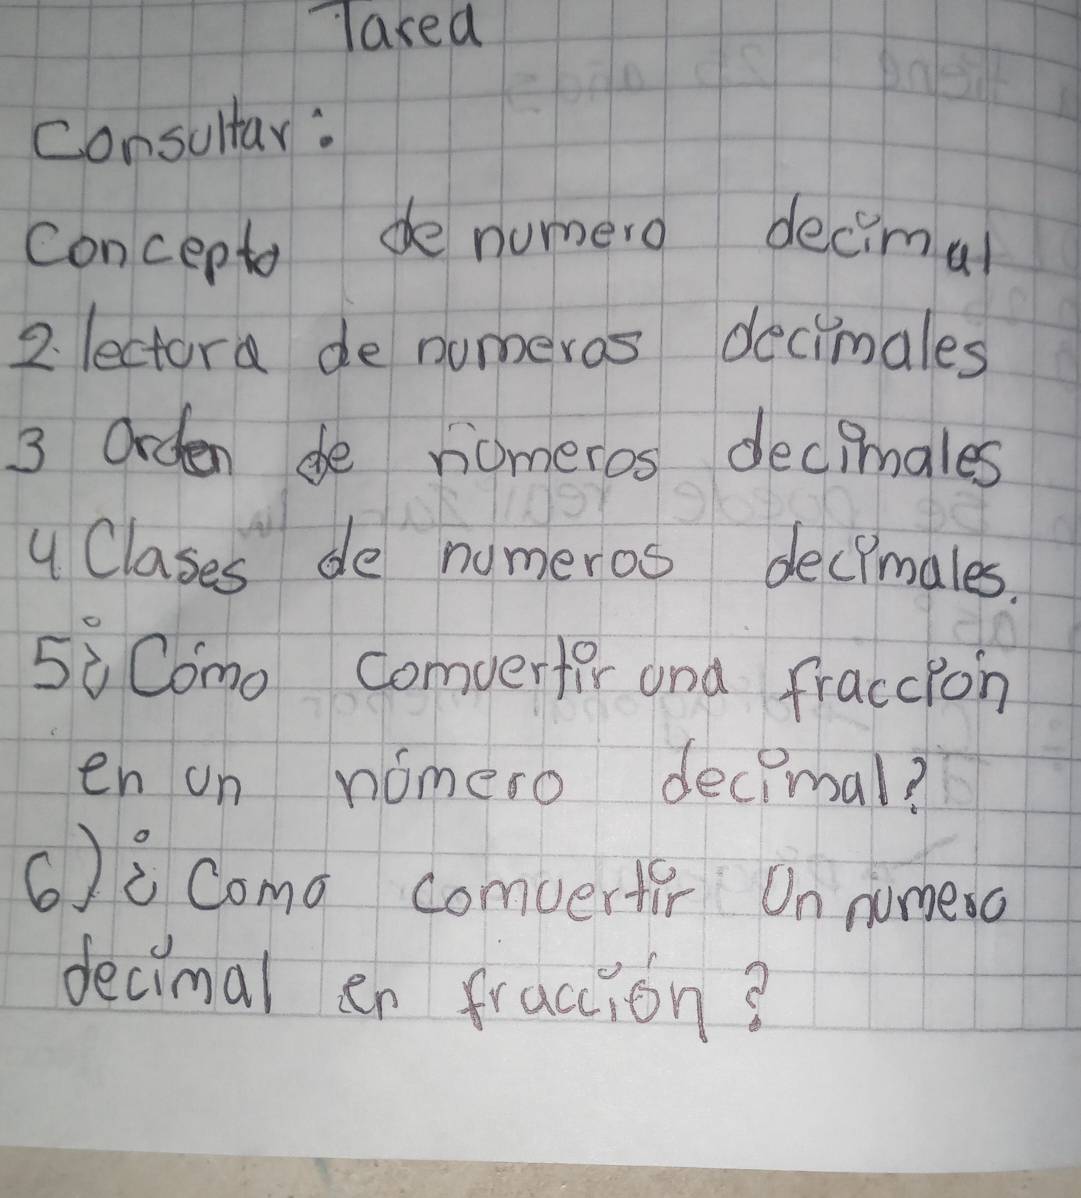 Tarea
Consultar:
Concepto de numero decimal
2. lectura de numeros decimales
3 Orden de números decimales
4 Clases de numeros decimales.
5 ¿Cómo comvertir una fraccion
en un número decimal?
6) ¿Como comvertir un numero
decimal en fracción?